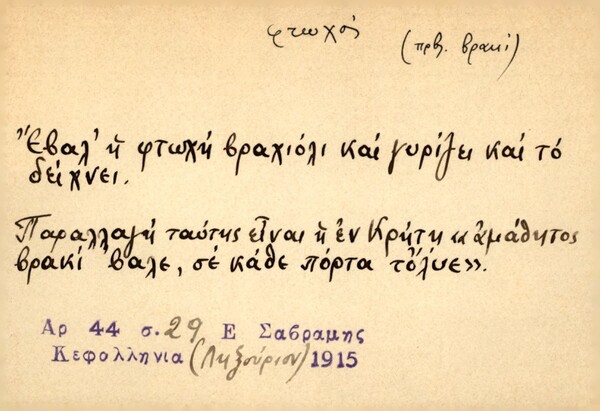 φτωχός
(πρβ. βρακί)
Ἔβαλ' ἡ φτωχή βραχιόλι καί γυρίζει καί τό
δείχνει.
Παραλλαγή ταύτης εἶναι ἡ ἐν Κρήτῃ «ἀμάθητος
βρακί 'βαλε, σέ κάθε πόρτα τὄλυε».
Αρ 44 σ. 29 Ε Σαβραμης
Κεφολληνια (Ληξούριον) 1915